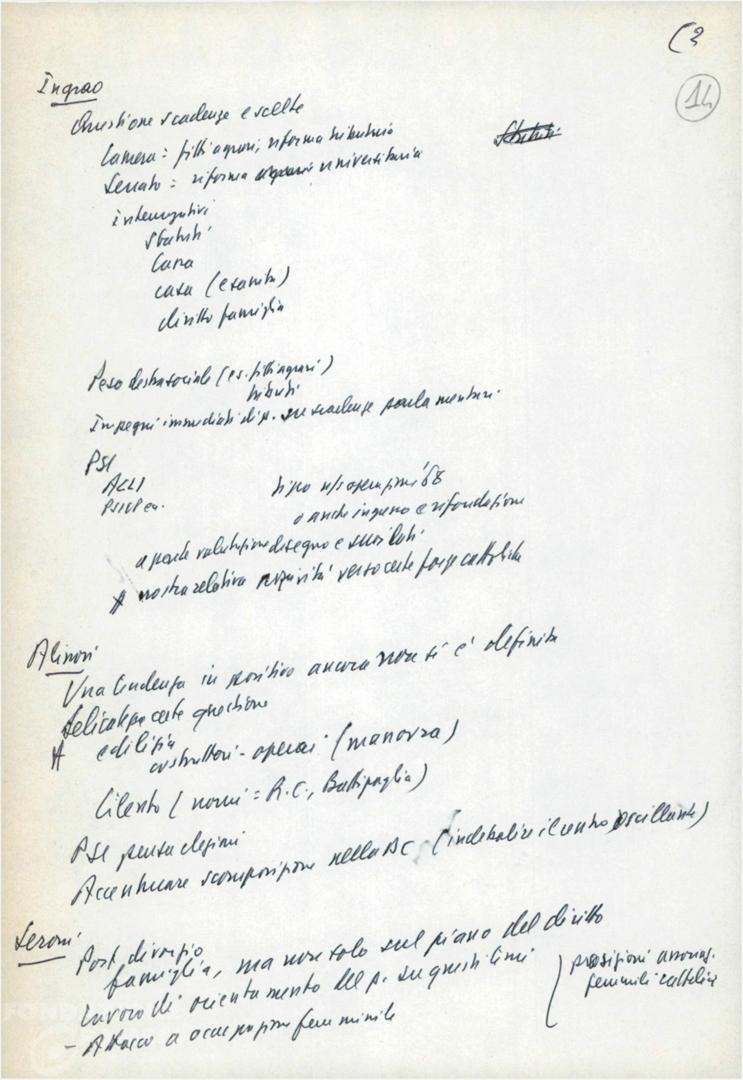 (2
14
Ingrao
Questione scadenze e scelte
Camera = fitti agrari, riforma tributaria
Senato = riforma universitaria
interrogativi
statuti
casa (e sanità)
diritto famiglia
Peso destra sociale (es. fitti agrari)
tributi
Impegni immediati di p. su scadenze
PSI
ACLI
PSIUP
tipo operazioni '68
o anche ingresso e rifondazione
a parte valutazione disegno e suoi lati
nostra relativa verso certe forze cattoliche
Alinovi
Una tendenza in positivo ancora non si è definita
Delicatezza certe questione
edilizia
costruttori - operai (manovra)
Cilento (nomi = R.C., Battipaglia)
PSI pensa elezioni
Accentuare scomposizione nella DC (indebolire il centro oscillante)
Seroni
Post divorzio
famiglia, ma non solo sul piano del diritto
Lavoro di orientamento del p. su questi temi
posizioni
femminili cattolice
- Attacco a occupazione femminile
FOND